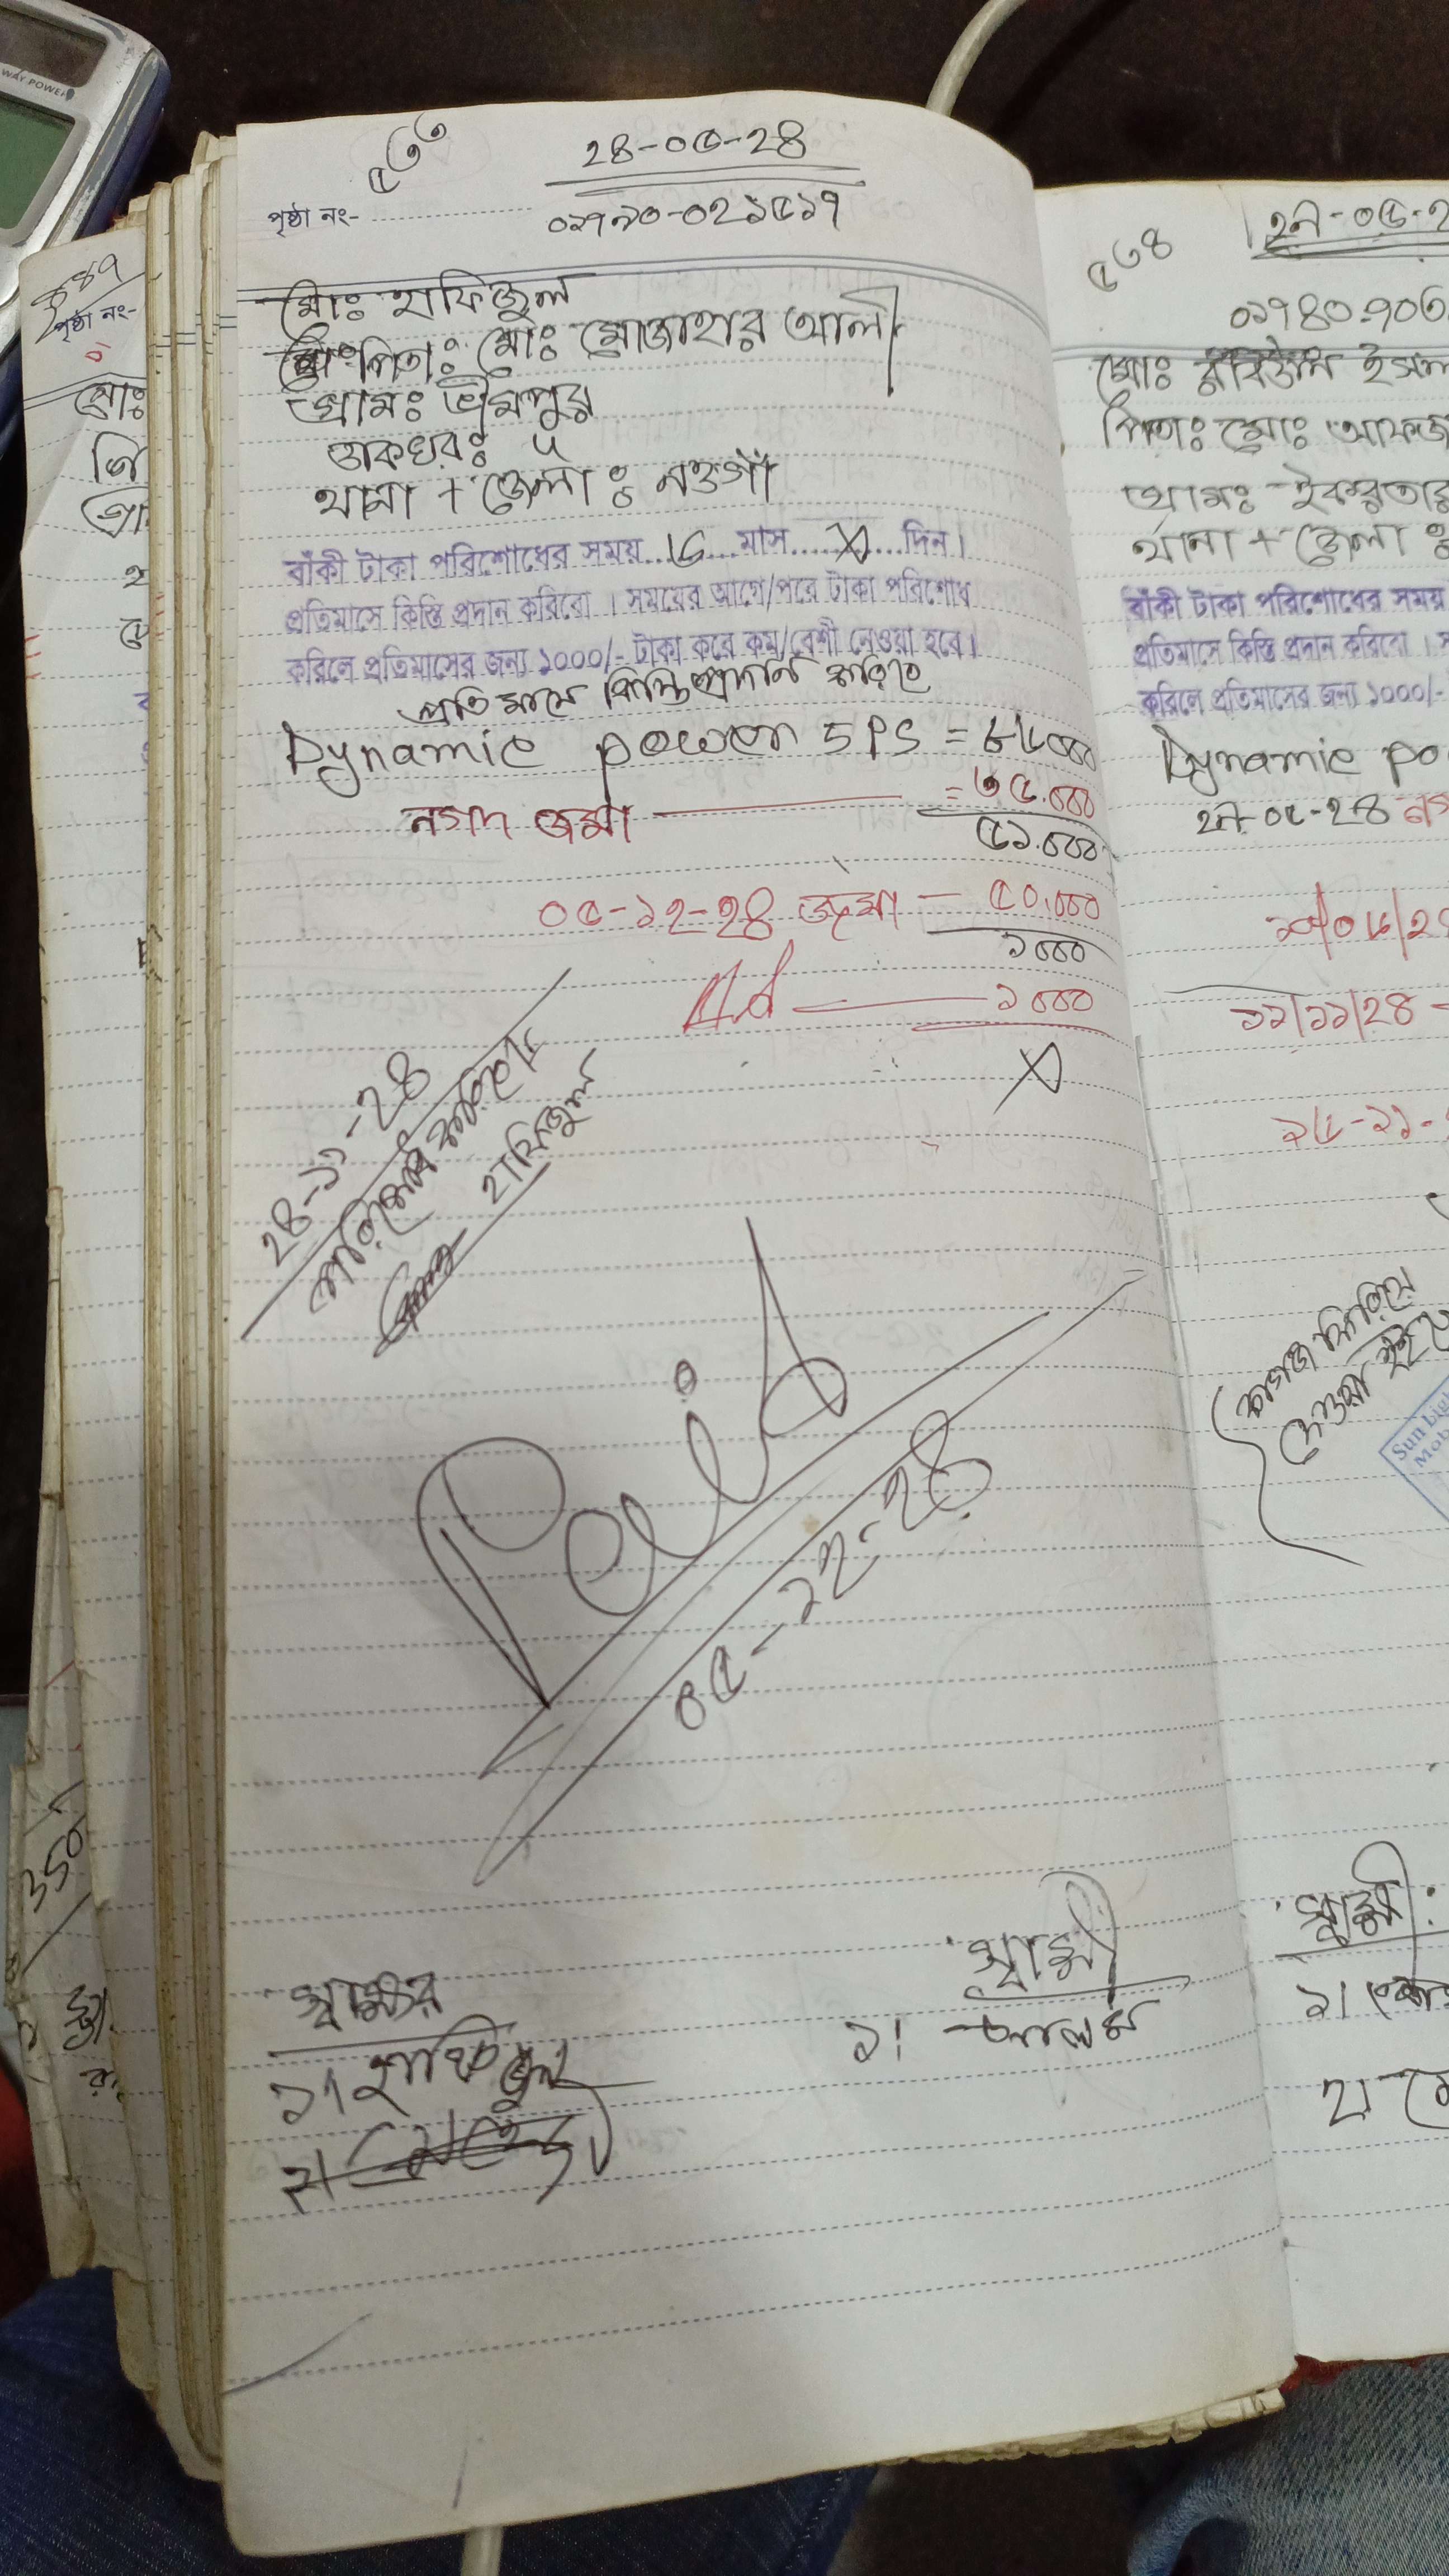 WAY POWER
৫৩৩
২৪-০৫-২৪
পৃষ্ঠা নং-
০১৭৯০-০২১৫১৭
মোঃ হাফিজুল
পিতা: মোঃ মোজাহার আলী
গ্রামঃ ভীমপুর
ডাকঘরঃ ঐ
থানা + জেলা ঃ নওগাঁ
বাঁকী টাকা পরিশোধের সময়..৬...মাস.....X....দিন।
প্রতিমাসে কিস্তি প্রদান করিবো । সময়ের আগে/পরে টাকা পরিশোধ
করিলে প্রতিমাসের জন্য ১০০০/- টাকা করে কম/বেশী নেওয়া হবে।
প্রতি মাসে কিস্তি প্রদান করিতে
Dynamic power 5 PS = ৮৬০০০
নগদ জমা = ৩৫.০০০
৫১.০০০
০৫-১২-২৪ জমা - ৫০.০০০
১০০০
১০০০
X
২৪-১১-২৪
পরিশোধ করিবো
হাফিজুল
Paid
০৫-১২-২৪
স্বাক্ষর
১। হাফিজুল
২।
স্বাক্ষী
১। আলম
৫৩৪
২৭-০৫-২
০১৭৪০-৭০৩
মোঃ রবিউল ইসল
পিতাঃ মোঃ আফজ
গ্রামঃ ইকরতার
থানা + জেলা ঃ
বাঁকী টাকা পরিশোধের সময়
প্রতিমাসে কিস্তি প্রদান করিবো ।
করিলে প্রতিমাসের জন্য ১০০০/-
Dynamic po
২৭-০৫-২৪ নগ
১১/১১/২৪ -
কাগজ ফিরিয়ে
দেওয়া হইছে
Sun Lig
Mob
স্বাক্ষী:
১।
২। মো
পৃষ্ঠা নং-
মোঃ
350